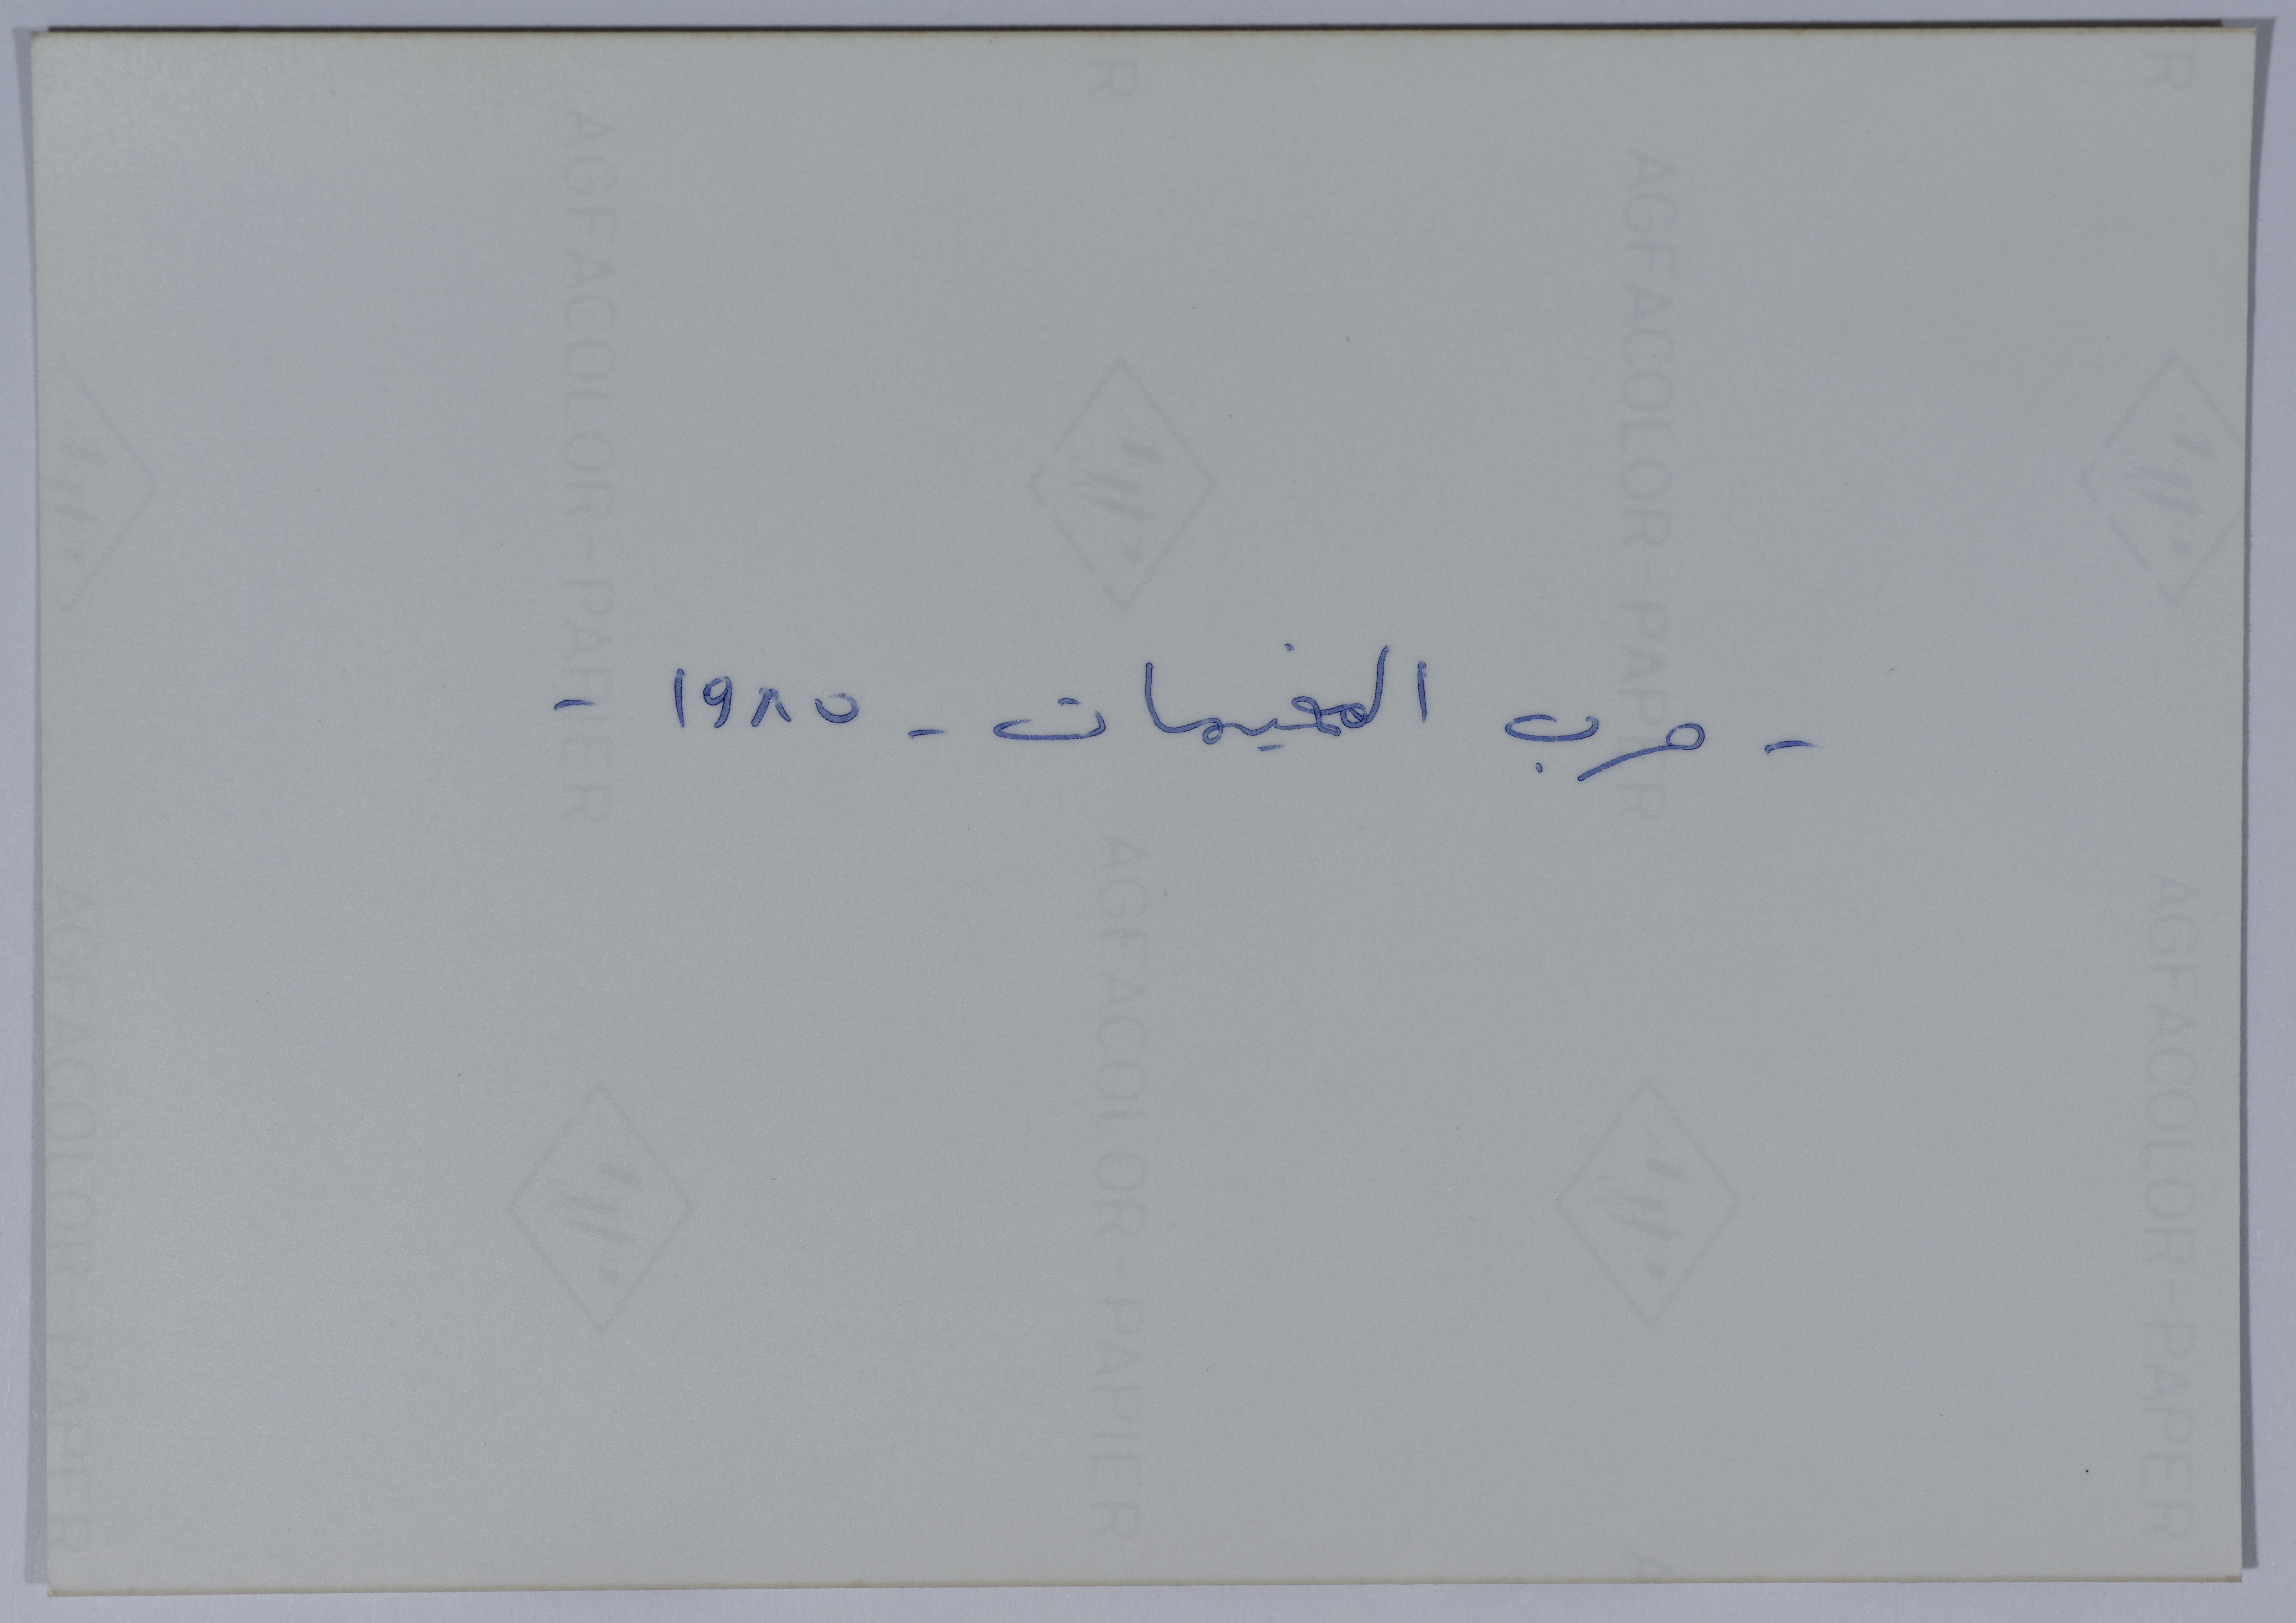 - حرب المخيمات - ١٩٨٥ -
R
R
AGFACOLOR-PAPIER
AGFACOLOR-PAPIER
AGFACOLOR-PAPIER
AGFACOLOR-PAPIER
AGFACOLOR-PAPER
A